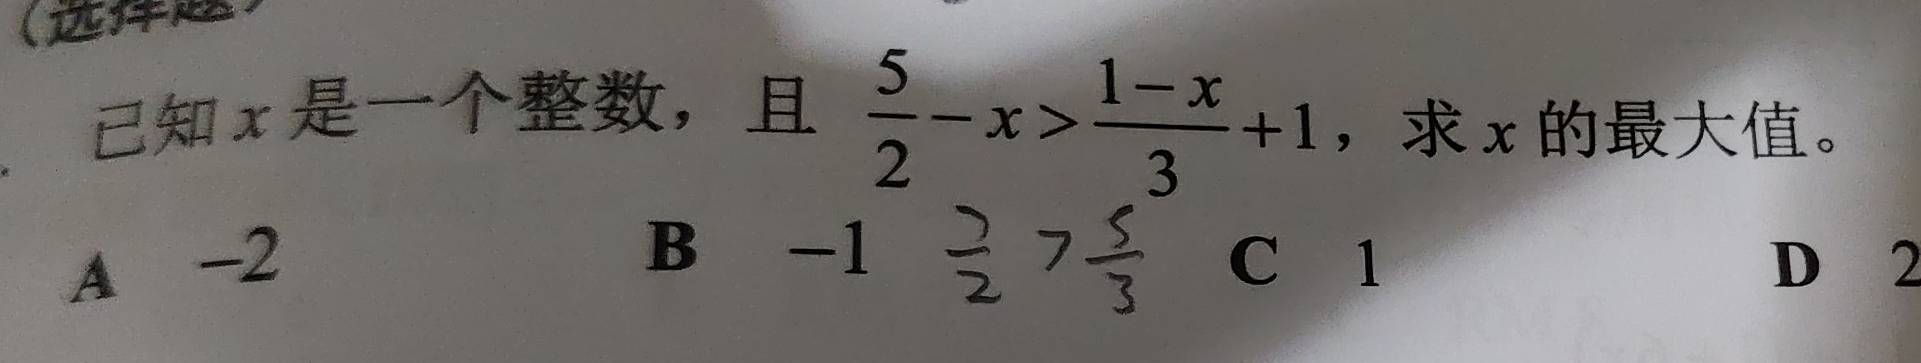 (选择题)
已知 x 是一个整数，且 5/2 - x > (1-x)/3 + 1，求 x 的最大值。
A -2 B -1 7/2 > 5/3 C 1 D 2